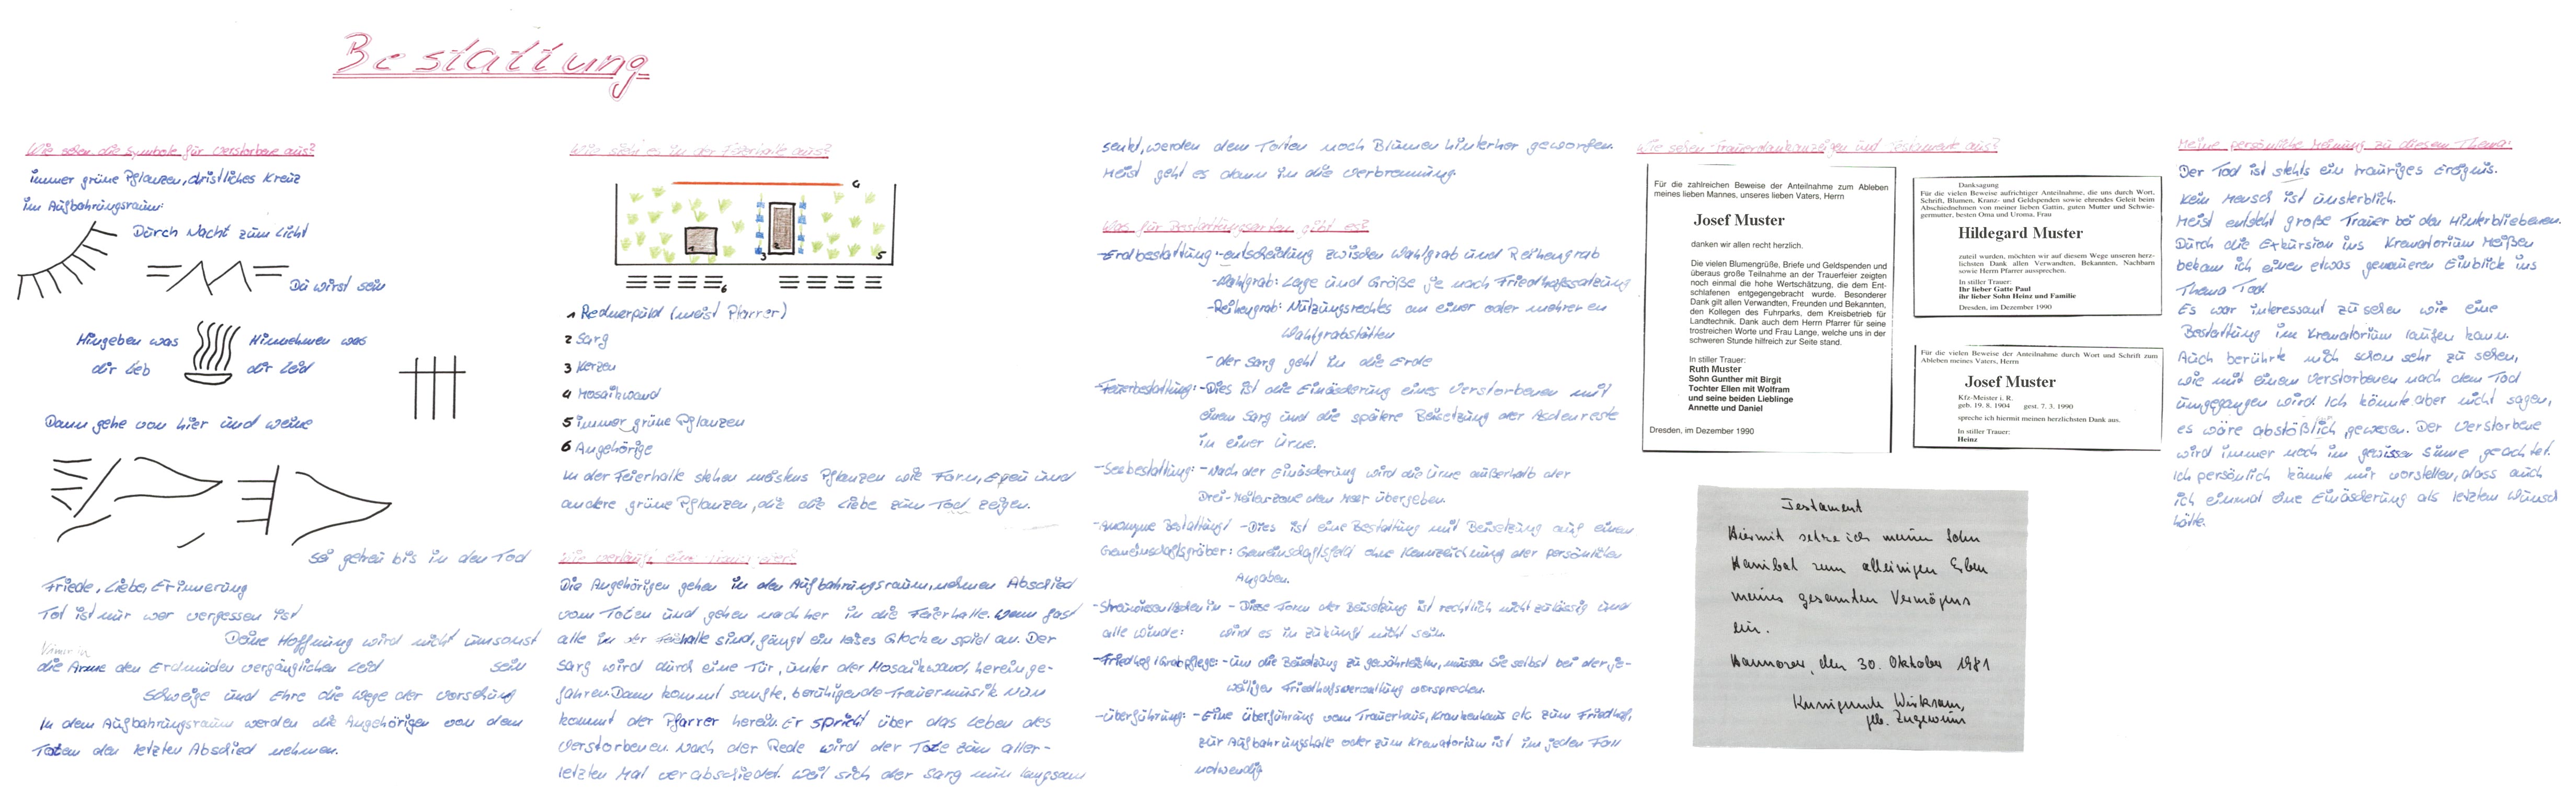 Bestattung
Wie sehen die Symbole für Verstorbene aus?
immer grüne Pflanzen, christliches Kreuz
im Aufbahrungsraum:
Durch Nacht zum Licht
Du wirst sein
Hingeben was
dir lieb
Hinnehmen was
dir leid
Dann gehe von hier und weine
Sei getreu bis in den Tod
Friede, Liebe, Erinnerung
Tot ist nur wer vergessen ist
Deine Hoffnung wird nicht umsonst
sein
die Arme den Erdmüden vergänglichen Leid
Schweige und Ehre die Wege der Vorsehung
In dem Aufbahrungsraum werden die Angehörigen von dem
Toten den letzten Abschied nehmen.
Wie sieht es in der Feierhalle aus?
4
1
2
3
5
6
1 Rednerpuld (meist Pfarrer)
2 Sarg
3 Kerzen
4 Mosaikwand
5 immer grüne Pflanzen
6 Angehörige
In der Feierhalle stehen meistens Pflanzen wie Farn, Efeu und
andere grüne Pflanzen, die die Liebe zum Tod zeigen.
Wie verläuft eine Trauerfeier?
Die Angehörigen gehen in den Aufbahrungsraum, nehmen Abschied
vom Toten und gehen nachher in die Feierhalle. Wenn fast
alle in der Feierhalle sind, fängt ein leises Glockenspiel an. Der
Sarg wird durch eine Tür, unter der Mosaikwand, hereinge-
fahren. Dann kommt sanfte, beruhigende Trauermusik. Nun
kommt der Pfarrer herein. Er spricht über das Leben des
Verstorbenen. Nach der Rede wird der Tote zum aller-
letzten Mal verabschiedet. Weil sich der Sarg nun langsam
senkt, werden dem Toten noch Blumen hinterher geworfen.
Meist geht es dann in die Verbrennung.
Was für Bestattungsarten gibt es?
-Erdbestattung: -entscheidung zwischen Wahlgrab und Reihengrab
-Wahlgrab: Lage und Größe je nach Friedhofssatzung
-Reihengrab: Nutzungsrechts an einer oder mehreren
Wahlgrabstätten
-der Sarg geht in die Erde
-Feuerbestattung: -Dies ist die Einäscherung eines Verstorbenen mit
einem Sarg und die spätere Beisetzung der Aschenreste
in einer Urne.
-Seebestattung: -Nach der Einäscherung wird die Urne außerhalb der
Drei-Meilenzone dem Meer übergeben.
-Anonyme Bestattung/ -Dies ist eine Bestattung mit Beisetzung auf einem
Gemeinschaftsgräber: Gemeinschaftsfeld ohne Kennzeichnung der persönlichen
Angaben.
-Streuwiesen/Asche in - Diese Form der Beisetzung ist rechtlich nicht zulässig und
alle Winde: wird es in Zukunft nicht sein.
-Friedhof/Grabpflege: -Um die Beisetzung zu gewährleisten, müssen Sie selbst bei der je-
weiligen Friedhofsverwaltung vorsprechen.
-Überführung: -Eine Überführung vom Trauerhaus, Krankenhaus etc. zum Friedhof,
zur Aufbahrungshalle oder zum Krematorium ist in jeden Fall
notwendig
Wie sehen Trauerdankanzeigen und Testamente aus?
Für die zahlreichen Beweise der Anteilnahme zum Ableben
meines lieben Mannes, unseres lieben Vaters, Herrn
Josef Muster
danken wir allen recht herzlich.
Die vielen Blumengrüße, Briefe und Geldspenden und
überaus große Teilnahme an der Trauerfeier zeigten
noch einmal die hohe Wertschätzung, die dem Ent-
schlafenen entgegengebracht wurde. Besonderer
Dank gilt allen Verwandten, Freunden und Bekannten,
den Kollegen des Fuhrparks, dem Kreisbetrieb für
Landtechnik. Dank auch dem Herrn Pfarrer für seine
trostreichen Worte und Frau Lange, welche uns in der
schweren Stunde hilfreich zur Seite stand.
In stiller Trauer:
Ruth Muster
Sohn Gunther mit Birgit
Tochter Ellen mit Wolfram
und seine beiden Lieblinge
Annette und Daniel
Dresden, im Dezember 1990
Danksagung
Für die vielen Beweise aufrichtiger Anteilnahme, die uns durch Wort,
Schrift, Blumen, Kranz- und Geldspenden sowie ehrendes Geleit beim
Abschiednehmen von meiner lieben Gattin, guten Mutter und Schwie-
germutter, besten Oma und Uroma, Frau
Hildegard Muster
zuteil wurden, möchten wir auf diesem Wege unseren herz-
lichsten Dank allen Verwandten, Bekannten, Nachbarn
sowie Herrn Pfarrer aussprechen.
In stiller Trauer:
Ihr lieber Gatte Paul
ihr lieber Sohn Heinz und Familie
Dresden, im Dezember 1990
Für die vielen Beweise der Anteilnahme durch Wort und Schrift zum
Ableben meines Vaters, Herrn
Josef Muster
Kfz-Meister i. R.
geb. 19. 8. 1904 gest. 7. 3. 1990
spreche ich hiermit meinen herzlichsten Dank aus.
In stiller Trauer:
Heinz
Testament
Hiermit setze ich meinen Sohn
Hanibal zum alleinigen Erben
meines gesamten Vermögens
ein.
Hannover, den 30. Oktober 1981
Kunigunde Wirksam,
geb. Zugewinn
Meine persönliche Meinung zu diesem Thema:
Der Tod ist stehts ein trauriges Ereignis.
Kein Mensch ist unsterblich.
Meist entsteht große Trauer bei den Hinterbliebenen.
Durch die Exkursion ins Krematorium Meißen
bekam ich einen etwas genaueren Einblick ins
Thema Tod.
Es war interessant zu sehen wie eine
Bestattung im Krematorium laufen kann.
Auch berührte mich schon sehr zu sehen,
wie mit einem Verstorbenen nach dem Tod
umgegangen wird. Ich könnte aber nicht sagen,
es wäre abstößlich gewesen. Der Verstorbene
wird immer noch im gewissen Sinne geachtet.
Ich persönlich könnte mir vorstellen, dass auch
ich einmal eine Einäscherung als letzten Wunsch
hätte.